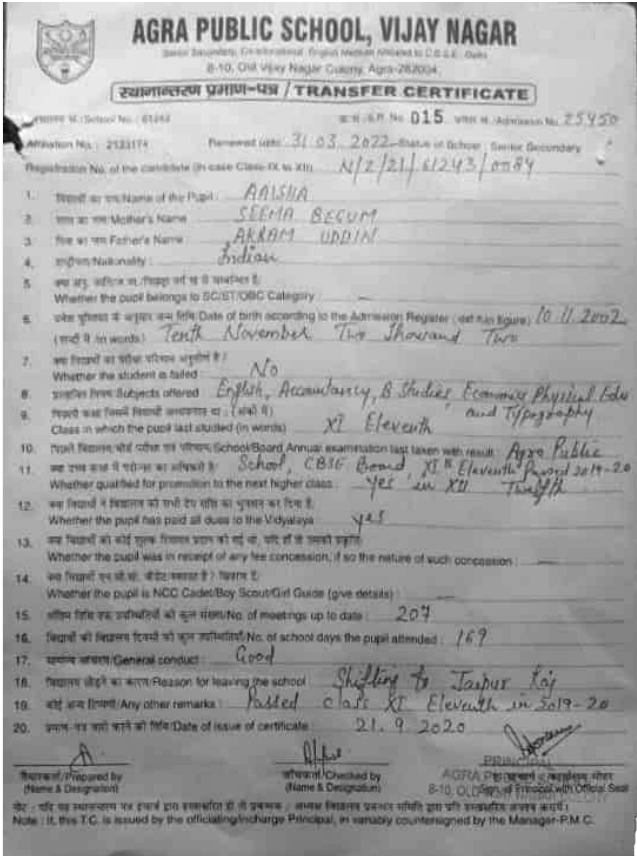 AGRA PUBLIC SCHOOL, VIJAY NAGAR
Senior Secondary, Co-educational, English Medium Affiliated to C.B.S.E. Delhi
8-10, Old Vijay Nagar Colony, Agra-282004
स्थानान्तरण प्रमाण-पत्र / TRANSFER CERTIFICATE
/School No. : 61243 S.R. No. 015 /Admission No. 25450
Affiliation No. : 2133174 Renewed upto : 31.03.2022 Status of School : Senior Secondary
Registration No. of the candidate (in case Class-IX to XII) N/2/21/61243/0084
1. विद्यार्थी का नाम/Name of the Pupil : AAISHA
2. माता का नाम/Mother's Name SEEMA BEGUM
3. पिता का नाम/Father's Name : AKRAM UDDIN
4. राष्ट्रीयता/Nationality : Indian
5.
Whether the pupil belongs to SC/ST/OBC Category : —
6. प्रवेश पुस्तिका के अनुसार जन्म तिथि/Date of birth according to the Admission Register (in figure) 10.11.2002
(शब्दों में /in words) Tenth November Two Thousand Two
7. क्या विद्यार्थी का परीक्षा परिणाम अनुत्तीर्ण है?
Whether the student is failed : No
8. प्रस्तावित विषय/Subjects offered : English, Accountancy, B Studies, Economics, Physical Edu
9. and Typography
Class in which the pupil last studied (in words) XI Eleventh
10. School/Board Annual examination last taken with result : Agra Public
11. School, CBSE Board, XI Eleventh Passed 2019-20
Whether qualified for promotion to the next higher class : Yes in XII Twelfth
12. क्या विद्यार्थी ने विद्यालय की सभी देय राशि का भुगतान कर दिया है:
Whether the pupil has paid all dues to the Vidyalaya yes
13.
Whether the pupil was in receipt of any fee concession, if so the nature of such concession : —
14.
Whether the pupil is NCC Cadet/Boy Scout/Girl Guide (give details) : —
15. No. of meetings up to date : 207
16. No. of school days the pupil attended : 169
17. सामान्य आचरण/General conduct : Good
18. विद्यालय छोड़ने का कारण/Reason for leaving the school : Shifting to Jaipur Raj
19. कोई अन्य टिप्पणी/Any other remarks : Passed class XI Eleventh in 2019-20
20. प्रमाण-पत्र जारी करने की तिथि/Date of issue of certificate : 21.9.2020
PRINCIPAL
/Prepared by /Checked by AGRA
(Name & Designation) (Name & Designation) 8-10, OLD Sign. of Principal with Official Seal
Note : It, this T.C. is issued by the officiating/incharge Principal, in variably countersigned by the Manager-P.M.C.